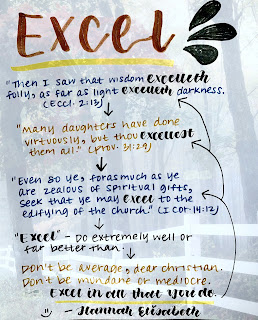 EXCEL
"Then I saw that wisdom excelleth
folly, as far as light excelleth darkness.
(Eccl. 2:13)
"Many daughters have done
virtuously, but thou excellest
them all." (Prov. 31:29)
"Even so ye, forasmuch as ye
are zealous of spiritual gifts,
seek that ye may excel to the
edifying of the church." (I Cor. 14:12)
"Excel" - Do extremely well or
far better than.
Don't be average, dear christian.
Don't be mundane or mediocre.
Excel in all that you do.
" - Hannah Elisabeth